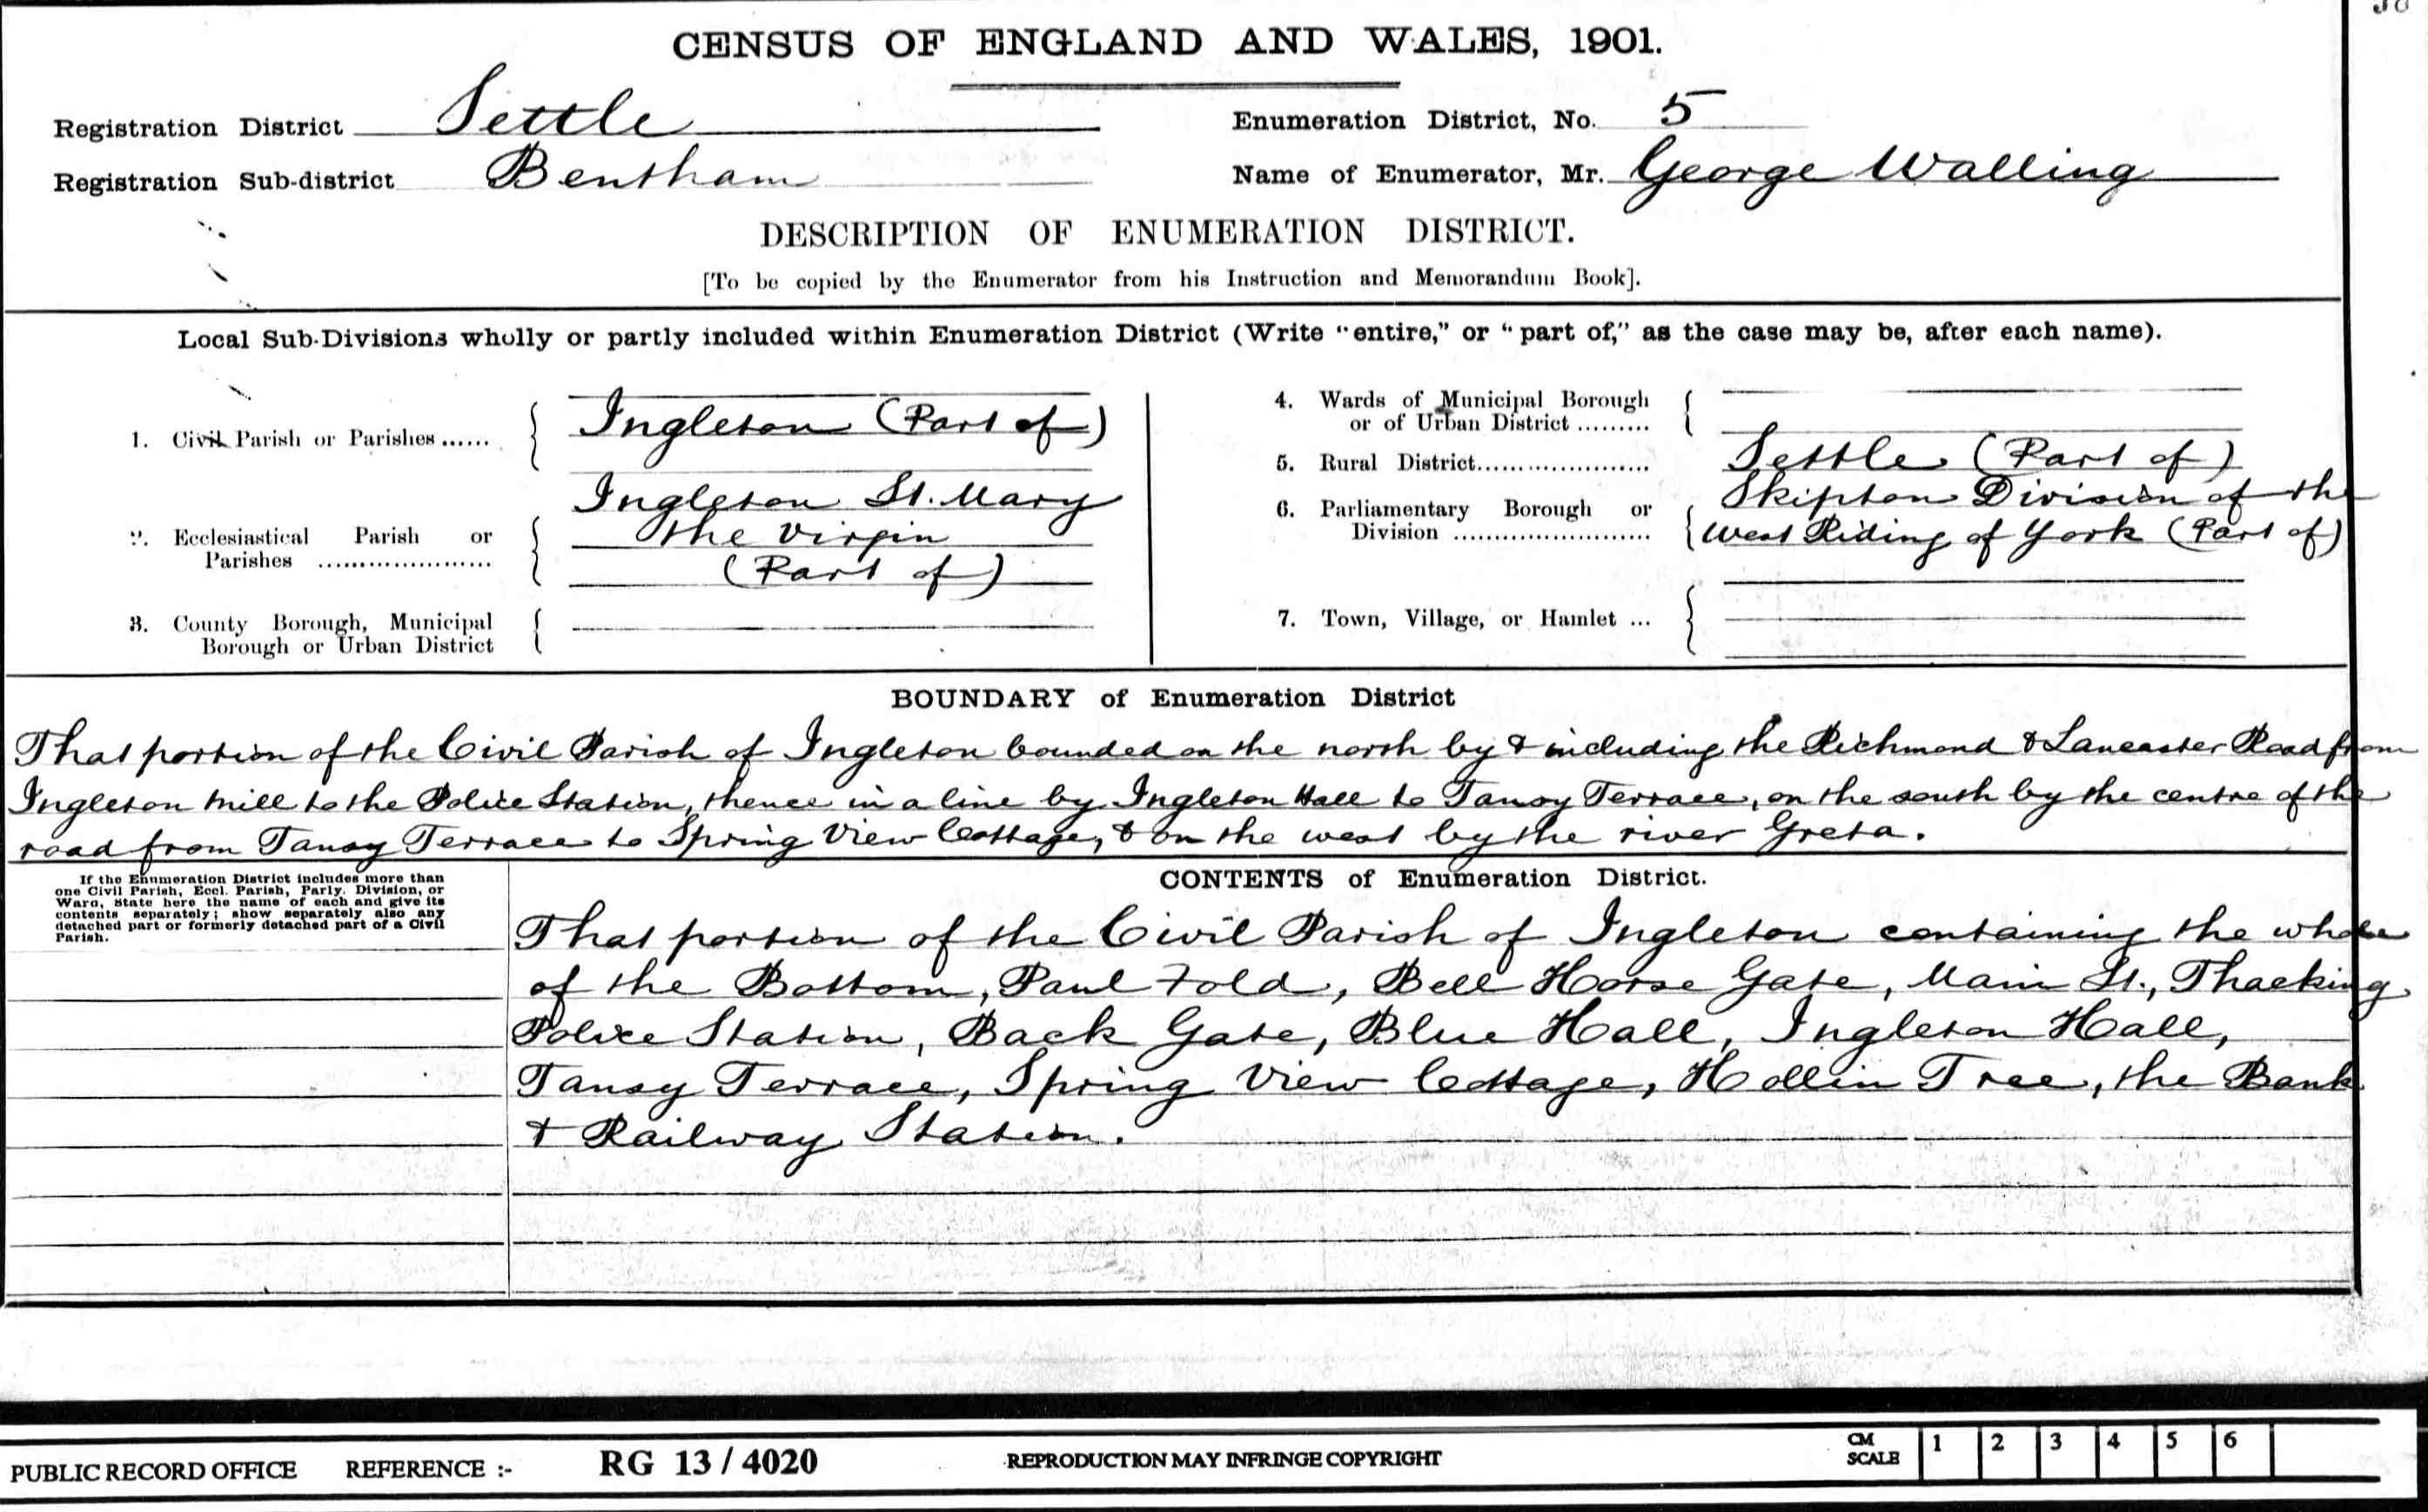 CENSUS OF ENGLAND AND WALES, 1901.
Registration District Settle
Enumeration District, No. 5
Registration Sub-district Bentham
Name of Enumerator, Mr. George Walling
DESCRIPTION OF ENUMERATION DISTRICT.
[To be copied by the Enumerator from his Instruction and Memorandum Book].
Local Sub-Divisions wholly or partly included within Enumeration District (Write "entire," or "part of," as the case may be, after each name).
1. Civil Parish or Parishes ...... { Ingleton (Part of)
2. Ecclesiastical Parish or
Parishes .....................
{ Ingleton St. Mary
the Virgin
(Part of)
3. County Borough, Municipal
Borough or Urban District {
4. Wards of Municipal Borough
or of Urban District ......... {
5. Rural District..................... Settle (Part of)
6. Parliamentary Borough or
Division .......................
{ Skipton Division of the
West Riding of York (Part of)
7. Town, Village, or Hamlet ... {
BOUNDARY of Enumeration District
That portion of the Civil Parish of Ingleton bounded on the north by & including the Richmond & Lancaster Road from
Ingleton Mill to the Police Station, thence in a line by Ingleton Hall to Tansy Terrace, on the south by the centre of the
road from Tansy Terrace to Spring View Cottage, & on the west by the river Greta.
If the Enumeration District includes more than
one Civil Parish, Eccl. Parish, Parly. Division, or
Ward, state here the name of each and give its
contents separately; show separately also any
detached part or formerly detached part of a Civil
Parish.
CONTENTS of Enumeration District.
That portion of the Civil Parish of Ingleton containing the whole
of the Bottom, Paul Fold, Bell Horse Gate, Main St., Thacking
Police Station, Back Gate, Blue Hall, Ingleton Hall,
Tansy Terrace, Spring View Cottage, Hollin Tree, the Bank
& Railway Station.
PUBLIC RECORD OFFICE REFERENCE :- RG 13 / 4020 REPRODUCTION MAY INFRINGE COPYRIGHT
CM SCALE 1 2 3 4 5 6